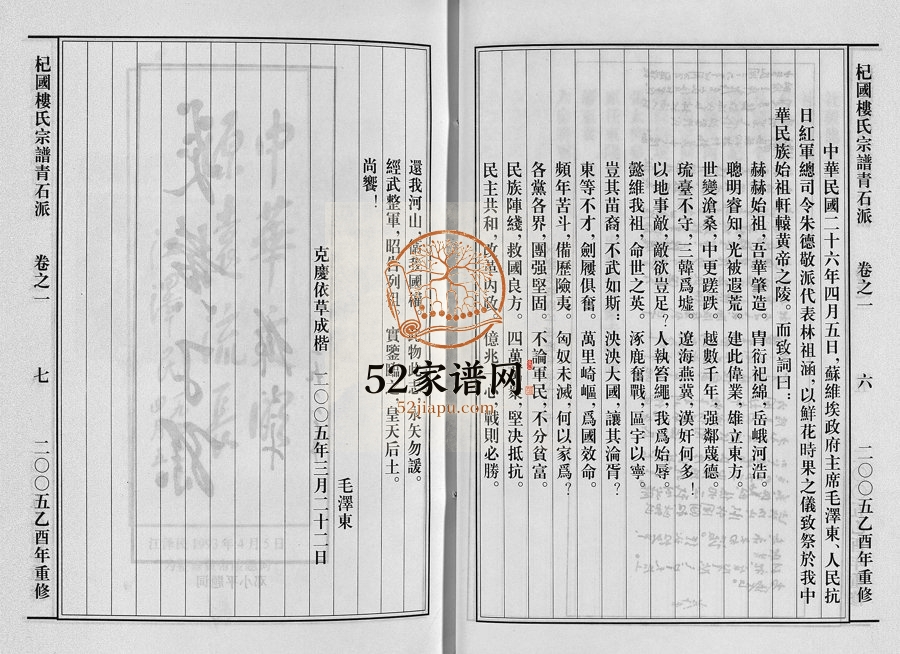 杞國樓氏宗譜青石派 卷之一 六 二〇〇五乙酉年重修
中華民國二十六年四月五日，蘇維埃政府主席毛澤東、人民抗
日紅軍總司令朱德敬派代表林祖涵，以鮮花時果之儀致祭於我中
華民族始祖軒轅黃帝之陵。而致詞曰：
赫赫始祖，吾華肇造。胄衍祀綿，岳峨河浩。
聰明睿知，光被遐荒。建此偉業，雄立東方。
世變滄桑，中更蹉跌。越數千年，强鄰蔑德。
琉臺不守，三韓爲墟。遼海燕冀，漢奸何多！
以地事敵，敵欲豈足？人執笞繩，我爲始辱。
懿維我祖，命世之英。涿鹿奮戰，區宇以寧。
豈其苗裔，不武如斯：泱泱大國，讓其淪胥？
東等不才，劍屨俱奮。萬里崎嶇，爲國效命。
頻年苦斗，備歷險夷。匈奴未滅，何以家爲？
各黨各界，團强堅固。不論軍民，不分貧富。
民族陣綫，救國良方。四萬 堅决抵抗。
民主共和，改革内政。億兆 心，戰則必勝。
還我河山， 我國權。 物此志，永矢勿諼。
經武整軍，昭告列祖。實鑒臨 皇天后土。
尚饗！
毛澤東
克慶依草成楷 二〇〇五年三月二十二日
杞國樓氏宗譜青石派 卷之一 七 二〇〇五乙酉年重修
江澤民 1993年4月5日
鄧小平題詞
52家谱网
52jiapu.com